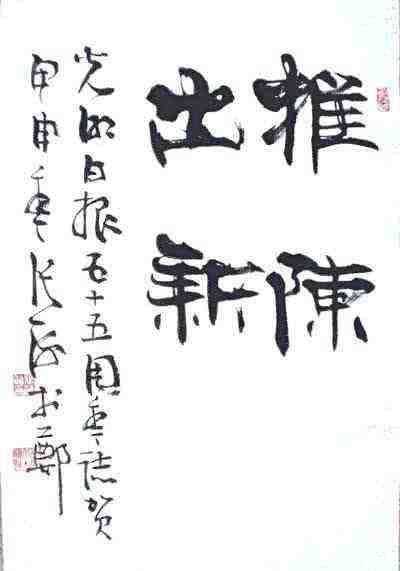 推陳
出新
光明日报五十五周年志贺
甲申年张海于郑